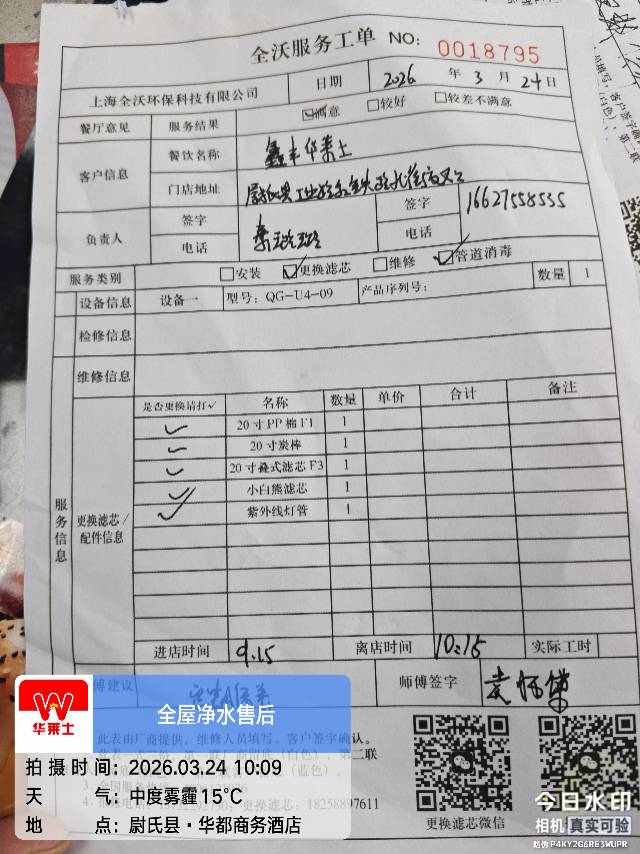 全沃服务工单 NO: 0018795
上海全沃环保科技有限公司 日期 2026 年 3 月 24 日
餐厅意见 服务结果 ☑满意 □较好 □较差不满意
客户信息 餐饮名称 鑫丰华莱士
门店地址 尉氏县工业路与
负责人 签字 签字 16627558535
电话 电话
服务类别 □安装 ☑更换滤芯 □维修 ☑管道消毒
设备信息 设备一 型号: QG-U4-09 产品序列号: 数量 1
检修信息
维修信息
服务信息
更换滤芯/配件信息
是否更换请打✓ 名称 数量 单价 合计 备注
✓ 20寸PP棉F1 1
✓ 20寸炭棒 1
✓ 20寸叠式滤芯F3 1
✓ 小白熊滤芯 1
✓ 紫外线灯管 1
进店时间 9:15 离店时间 10:15 实际工时
傅建议 师傅签字
此表由厂商提供，维修人员填写，客户签字确认。
(白色)，第二联
(蓝色)。
更换滤芯: 18258897611
更换滤芯微信
华莱士
全屋净水售后
拍摄时间: 2026.03.24 10:09
天气: 中度雾霾 15℃
地点: 尉氏县·华都商务酒店
今日水印
相机 真实可验
防伪 P4KY2G6RE3WUPR